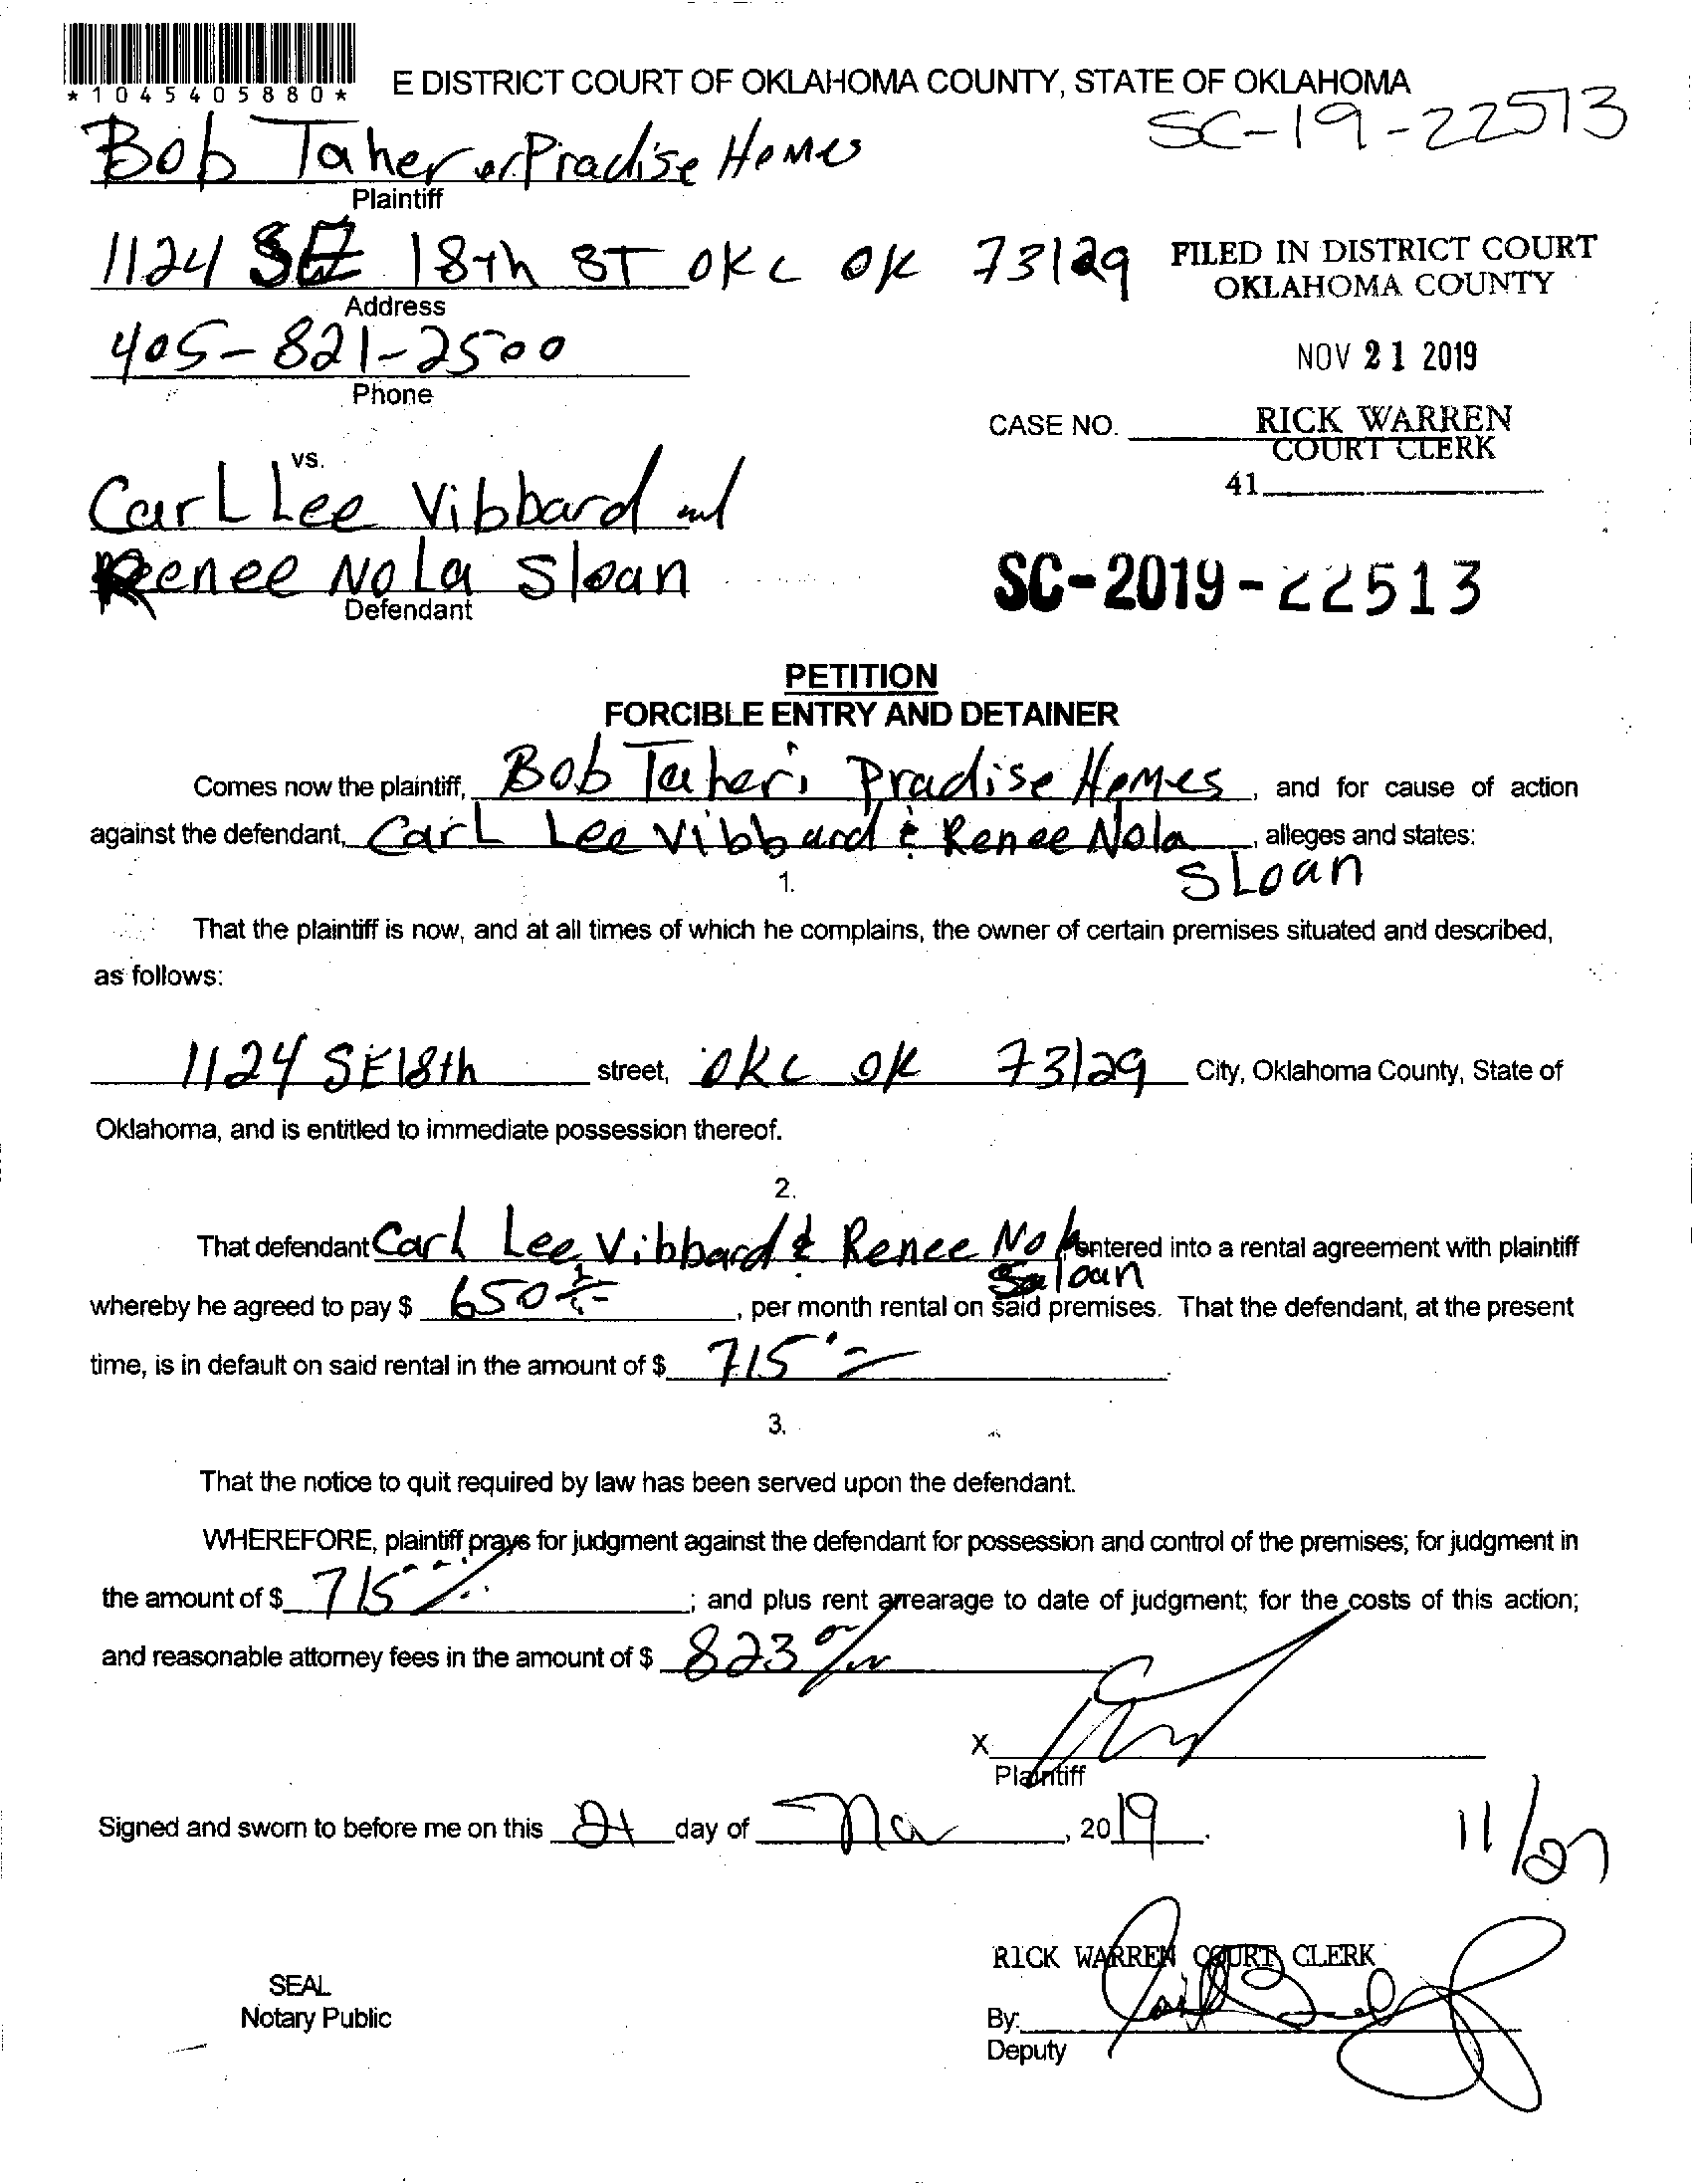 *1045405880*
E DISTRICT COURT OF OKLAHOMA COUNTY, STATE OF OKLAHOMA
SC-19-22513
Bob Taher or Pradise Homes
Plaintiff
1124 SE 18th ST OKC OK 73129
Address
FILED IN DISTRICT COURT
OKLAHOMA COUNTY
405-821-2500
Phone
NOV 21 2019
CASE NO.
RICK WARREN
COURT CLERK
41
vs.
Carl Lee Vibbard and
Renee Nola Sloan
Defendant
SC-2019-22513
PETITION
FORCIBLE ENTRY AND DETAINER
Comes now the plaintiff, Bob Taheri Pradise Homes, and for cause of action
against the defendant, Carl Lee Vibbard & Renee Nola, alleges and states:
Sloan
1.
That the plaintiff is now, and at all times of which he complains, the owner of certain premises situated and described,
as follows:
1124 SE 18th street, OKC OK 73129 City, Oklahoma County, State of
Oklahoma, and is entitled to immediate possession thereof.
2.
That defendant Carl Lee Vibbard & Renee Nola entered into a rental agreement with plaintiff
Sloan
whereby he agreed to pay $ 650, per month rental on said premises. That the defendant, at the present
time, is in default on said rental in the amount of $ 715.
3.
That the notice to quit required by law has been served upon the defendant.
WHEREFORE, plaintiff prays for judgment against the defendant for possession and control of the premises; for judgment in
the amount of $ 715; and plus rent arrearage to date of judgment; for the costs of this action;
and reasonable attorney fees in the amount of $ 823
X
Plaintiff
Signed and sworn to before me on this 21 day of Nov, 2019.
11/27
RICK WARREN COURT CLERK
SEAL
Notary Public
By:
Deputy